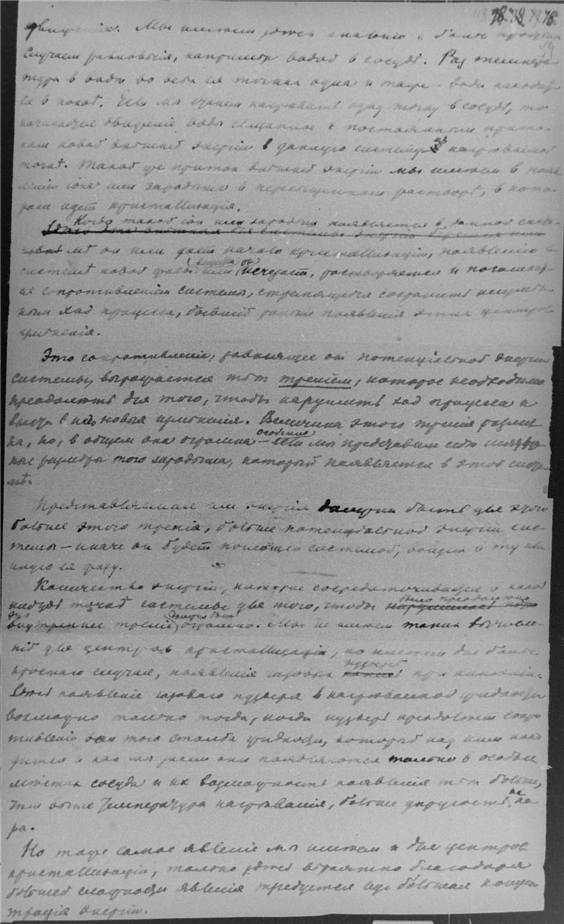 78
движенія. Мы имѣемъ здѣсь аналогію съ болѣе простымъ
случаемъ равновѣсія, напримѣръ водой въ сосудѣ. Раз темпера
тура в водѣ во всѣхъ ея точкахъ одна и та же - вода находит
ся в покоѣ. Если мы начнемъ нагрѣвать одну точку в сосудѣ, то
начинается движеніе воды связанное с постояннымъ прито
комъ новой внѣшней энергіи в данную систему в нагрѣваемой
точкѣ. Такой же притокъ внѣшней энергіи мы имѣемъ в появ
леніи или зародыша в пересыщенномъ растворѣ, в кото
ромъ идетъ кристаллизація.
Когда такой или зародышъ появляется в данное
он или даетъ начало кристаллизаціи, появленію в
системѣ новой фазы или исчезаетъ, растворяется и поглощает
ся сопротивленіемъ системы, стремящейся сохранить неизмѣн
нымъ ход процесса, бывшій раньше появленія этихъ центровъ
измѣненія.
Это сопротивленіе, зависящее от потенціальной энергіи
системы, выражается тѣмъ треніемъ, которое необходимо
преодолѣть для того, чтобы нарушить ход процесса и
ввести в него новыя измѣненія. Величина этого тренія различ
на, но, в общемъ она огромна - особенно если мы представимъ себѣ ничтож
ные размѣры того зародыша, который появляется в этой систе
мѣ.
Представляемая имъ энергія должна быть для этого
больше этого тренія, больше потенціальной энергіи сис
темы - иначе он будетъ поглощенъ системой, войдетъ в ту или
иную ея фазу.
Количество энергіи, которое сосредоточивается в какой
нибудь точкѣ системы для того, чтобы было преодолѣно
внутреннее треніе огромно. Мы не имѣемъ такихъ вычисле
ній для центровъ кристаллизаціи, но имѣемъ для болѣе
простого случая, появленія газового пузырька при кипѣніи.
Здѣсь появленіе газового пузыря в нагрѣваемой жидкости
возможно только тогда, когда пузырь преодолѣетъ сопро
тивленіе всего того столба жидкости, который над нимъ нахо
дится и какъ мы знаемъ они появляются только в особыхъ
мѣстахъ сосуда и их возможность появленія тѣмъ больше,
чѣмъ выше температура нагрѣванія, больше упругость па
ра.
Но то же самое явленіе мы имѣемъ и для центровъ
кристаллизаціи, только здѣсь вѣроятно благодаря
большей сложности явленія требуется еще большая концен
трація энергіи.